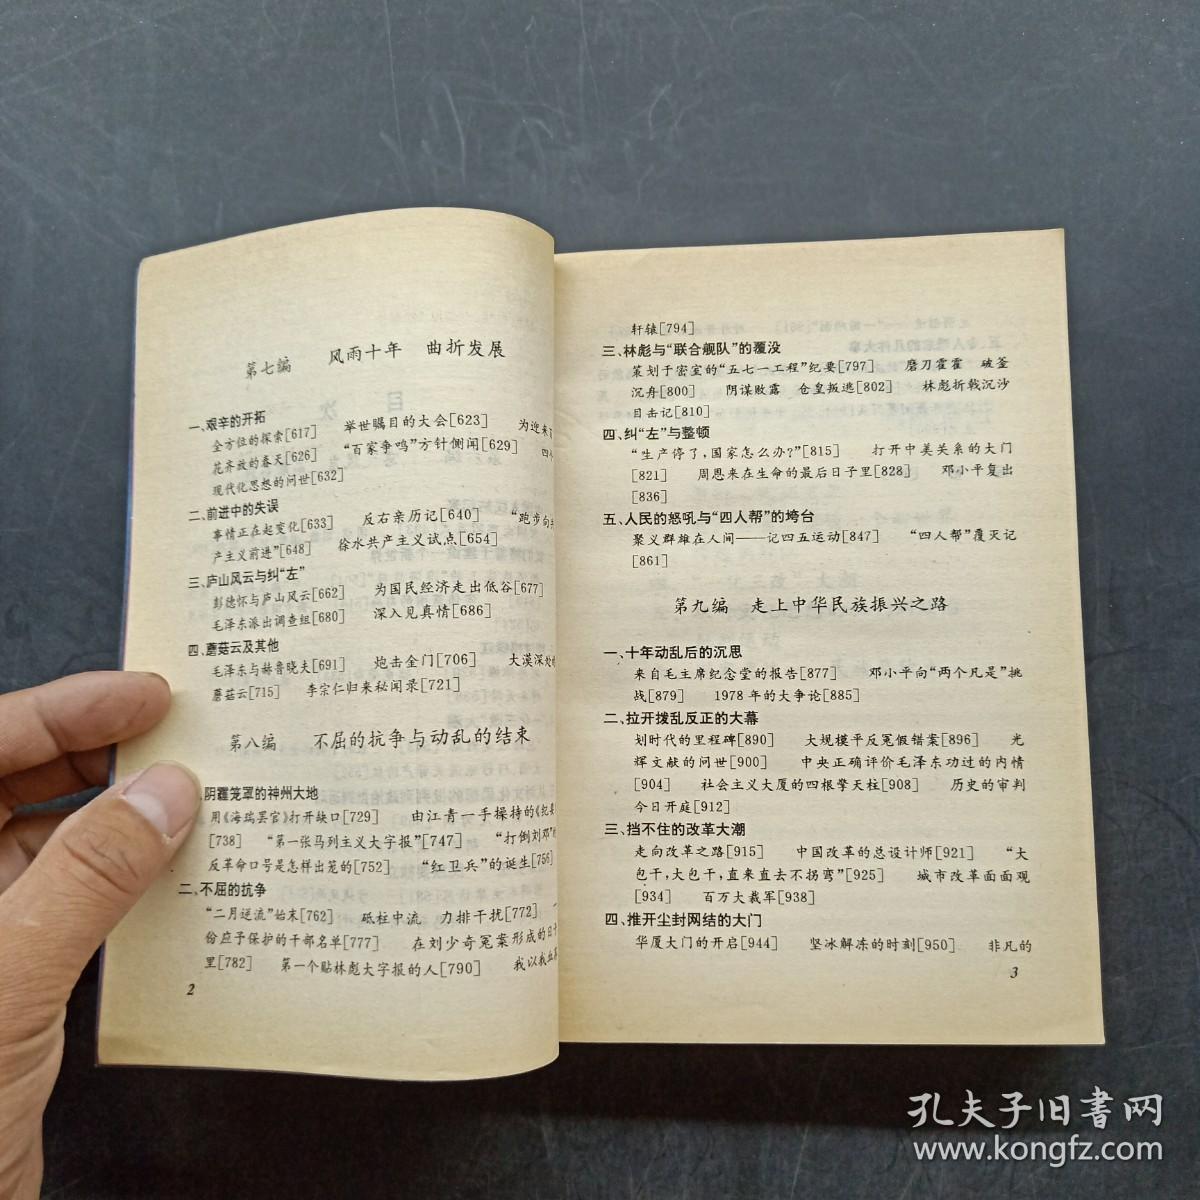 第七编 风雨十年 曲折发展
一、艰辛的开拓
全方位的探索[617] 举世瞩目的大会[623] 为迎来百
花齐放的春天[626] “百家争鸣”方针侧闻[629] 四个
现代化思想的问世[632]
二、前进中的失误
事情正在起变化[633] 反右亲历记[640] “跑步向共
产主义前进”[648] 徐水共产主义试点[654]
三、庐山风云与纠“左”
彭德怀与庐山风云[662] 为国民经济走出低谷[677]
毛泽东派出调查组[680] 深入见真情[686]
四、蘑菇云及其他
毛泽东与赫鲁晓夫[691] 炮击金门[706] 大漠深处
蘑菇云[715] 李宗仁归来秘闻录[721]
第八编 不屈的抗争与动乱的结束
、阴霾笼罩的神州大地
用《海瑞罢官》打开缺口[729] 由江青一手操持的《纪要
[738] “第一张马列主义大字报”[747] “打倒刘邓”
反革命口号是怎样出笼的[752] “红卫兵”的诞生[756
二、不屈的抗争
“二月逆流”始末[762] 砥柱中流 力排干扰[772] 一
份应予保护的干部名单[777] 在刘少奇冤案形成的日子
里[782] 第一个贴林彪大字报的人[790] 我以我血荐
2
轩辕[794]
三、林彪与“联合舰队”的覆没
策划于密室的“五七一工程”纪要[797] 磨刀霍霍 破釜
沉舟[800] 阴谋败露 仓皇叛逃[802] 林彪折戟沉沙
目击记[810]
四、纠“左”与整顿
“生产停了,国家怎么办?”[815] 打开中美关系的大门
[821] 周恩来在生命的最后日子里[828] 邓小平复出
[836]
五、人民的怒吼与“四人帮”的垮台
聚义群雄在人间——记四五运动[847] “四人帮”覆灭记
[861]
第九编 走上中华民族振兴之路
一、十年动乱后的沉思
来自毛主席纪念堂的报告[877] 邓小平向“两个凡是”挑
战[879] 1978年的大争论[885]
二、拉开拨乱反正的大幕
划时代的里程碑[890] 大规模平反冤假错案[896] 光
辉文献的问世[900] 中央正确评价毛泽东功过的内情
[904] 社会主义大厦的四根擎天柱[908] 历史的审判
今日开庭[912]
三、挡不住的改革大潮
走向改革之路[915] 中国改革的总设计师[921] “大
包干,大包干,直来直去不拐弯”[925] 城市改革面面观
[934] 百万大裁军[938]
四、推开尘封网结的大门
华厦大门的开启[944] 坚冰解冻的时刻[950] 非凡的
3
孔夫子旧书网
www.kongfz.com